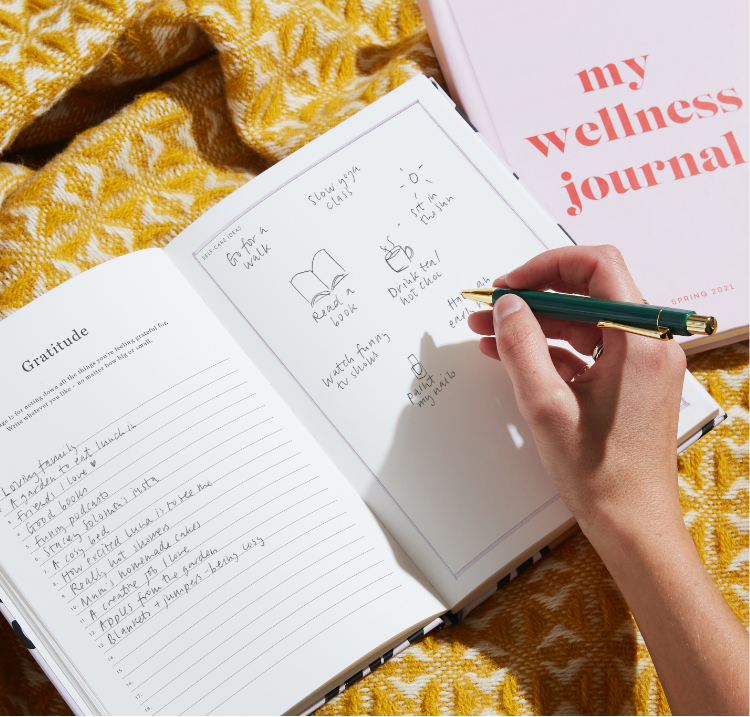 my
wellness
journal
SPRING 2021
Gratitude
page is for noting down all the things you're feeling grateful for.
Write whatever you like - no matter how big or small.
Loving family
A garden to eat lunch in
Friends I love ♥
Good books
Funny podcasts
Stacey Solomon's insta
A cosy bed
How excited Luna is to see me
Really hot showers
10. Mum's homemade cakes
11. A creative job I love
12. Apples from the garden
13. Blankets + jumpers - being cosy
14.
15.
17.
18.
SELF-CARE IDEAS
Go for a
walk
Slow yoga
class
Sit in
the sun
Read a
book
Drink tea/
hot choc
early
Watch funny
tv shows
Paint
my nails